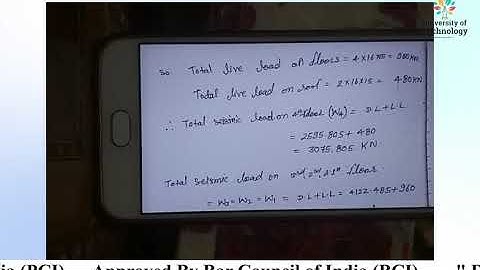 University of
Technology
So Total live load on floors = 4×16×15 = 960 KN
Total live load on roof = 2×16×15 = 480 KN
∴ Total seismic load on 4th floor (W4) = D.L+L.L
= 2595.805 + 480
= 3075.805 KN
Total seismic load on 3rd, 2nd, & 1st floors
= W3 = W2 = W1 = D.L+L.L = 4122.485+960
(BCI) Approved By Bar Council of India (BCI) "